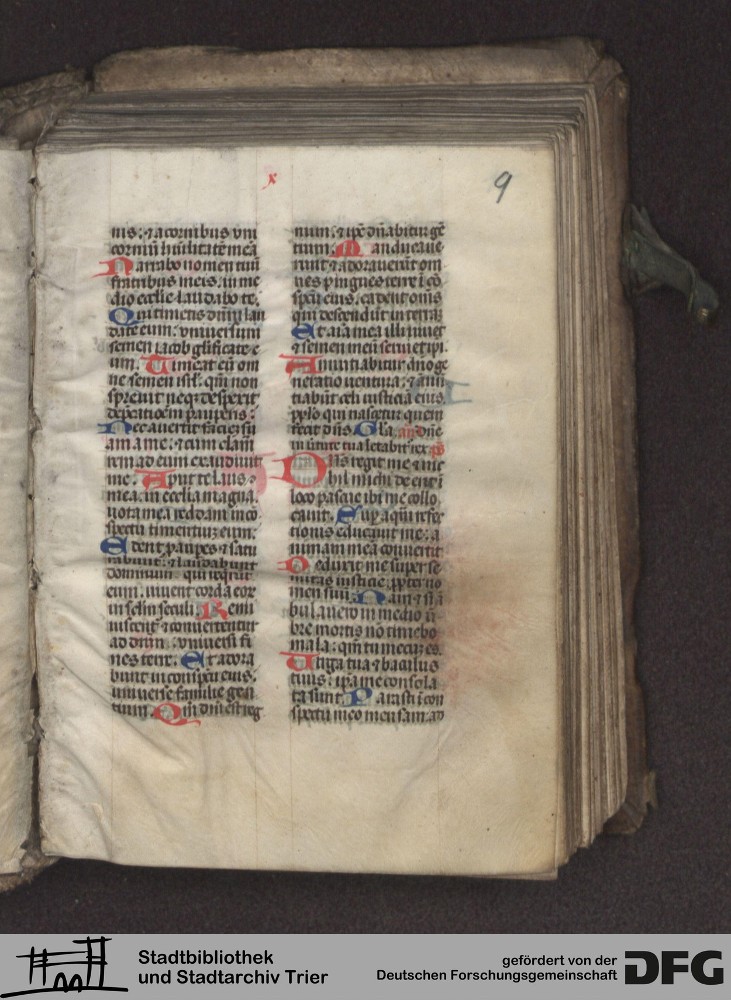 x
9
nis: ⁊ a cornibus vni
corniū hūilitatē meā
Narrabo nomen tuū
fratribus meis: in me
dio ecclie laudabo te.
Qui timetis dn̄m lau
date eum: vniuersum
semen iacob glificate e
um. Timeat eū om
ne semen isrl: qm̄ non
spreuit neqȝ despexit
dep̄catioēm pauperis:
Nec auertit faciē suā
am a me: ⁊ cum clamā
rem ad eum exaudiuit
me. Aput te laus
mea in ecclia magna.
uota mea reddam in cō
spectu timentiuȝ eum.
Edent paupes ⁊ satu
rabunt: ⁊ laudabunt
dominum qui reqrūt
eum: viuent corda eoȝ
in sclm seculi. Remi
niscent ⁊ conuertentur
ad dn̄m: vniuersi fi
nes terre: Et adora
bunt in conspectu eius.
vniuerse familie gen
tium. Qm̄ dn̄i est reg
num: ⁊ ipē dn̄abitur gē
tium. Manducaue
runt ⁊ adorauerūt om
nes pingues terre ī cō
spectu eius. cadent om̄s
qui descendūt in terrā
Et aīa mea illi uiuet
⁊ semen meū seruiet ipi.
Anuntiabitur dno ge
neratio uentura: ⁊ anū
tiabūt celi iusticiā eius.
pplo qui nascetur quem
fecit dn̄s. Gla. an̄ dn̄e
in uirtute tua letabitur rex. ps̄
Dn̄s regit me ⁊ nic
hil michi deerit ī
loco pascue ibi me collo
cauit. Sup aqm̄ refec
tionis educauit me: a
nimam meā conuertit
Deduxit me super se
mitas iusticie: ppter no
men suū. Nam ⁊ si ā
bulauero in medio ū
bre mortis nō timebo
mala: qm̄ tu mecuȝ es.
Uirga tua ⁊ baculus
tuus: ipa me consola
ta sunt. Parasti ī con
spectu meo mensam: ad
Stadtbibliothek
und Stadtarchiv Trier
gefördert von der
Deutschen Forschungsgemeinschaft
DFG